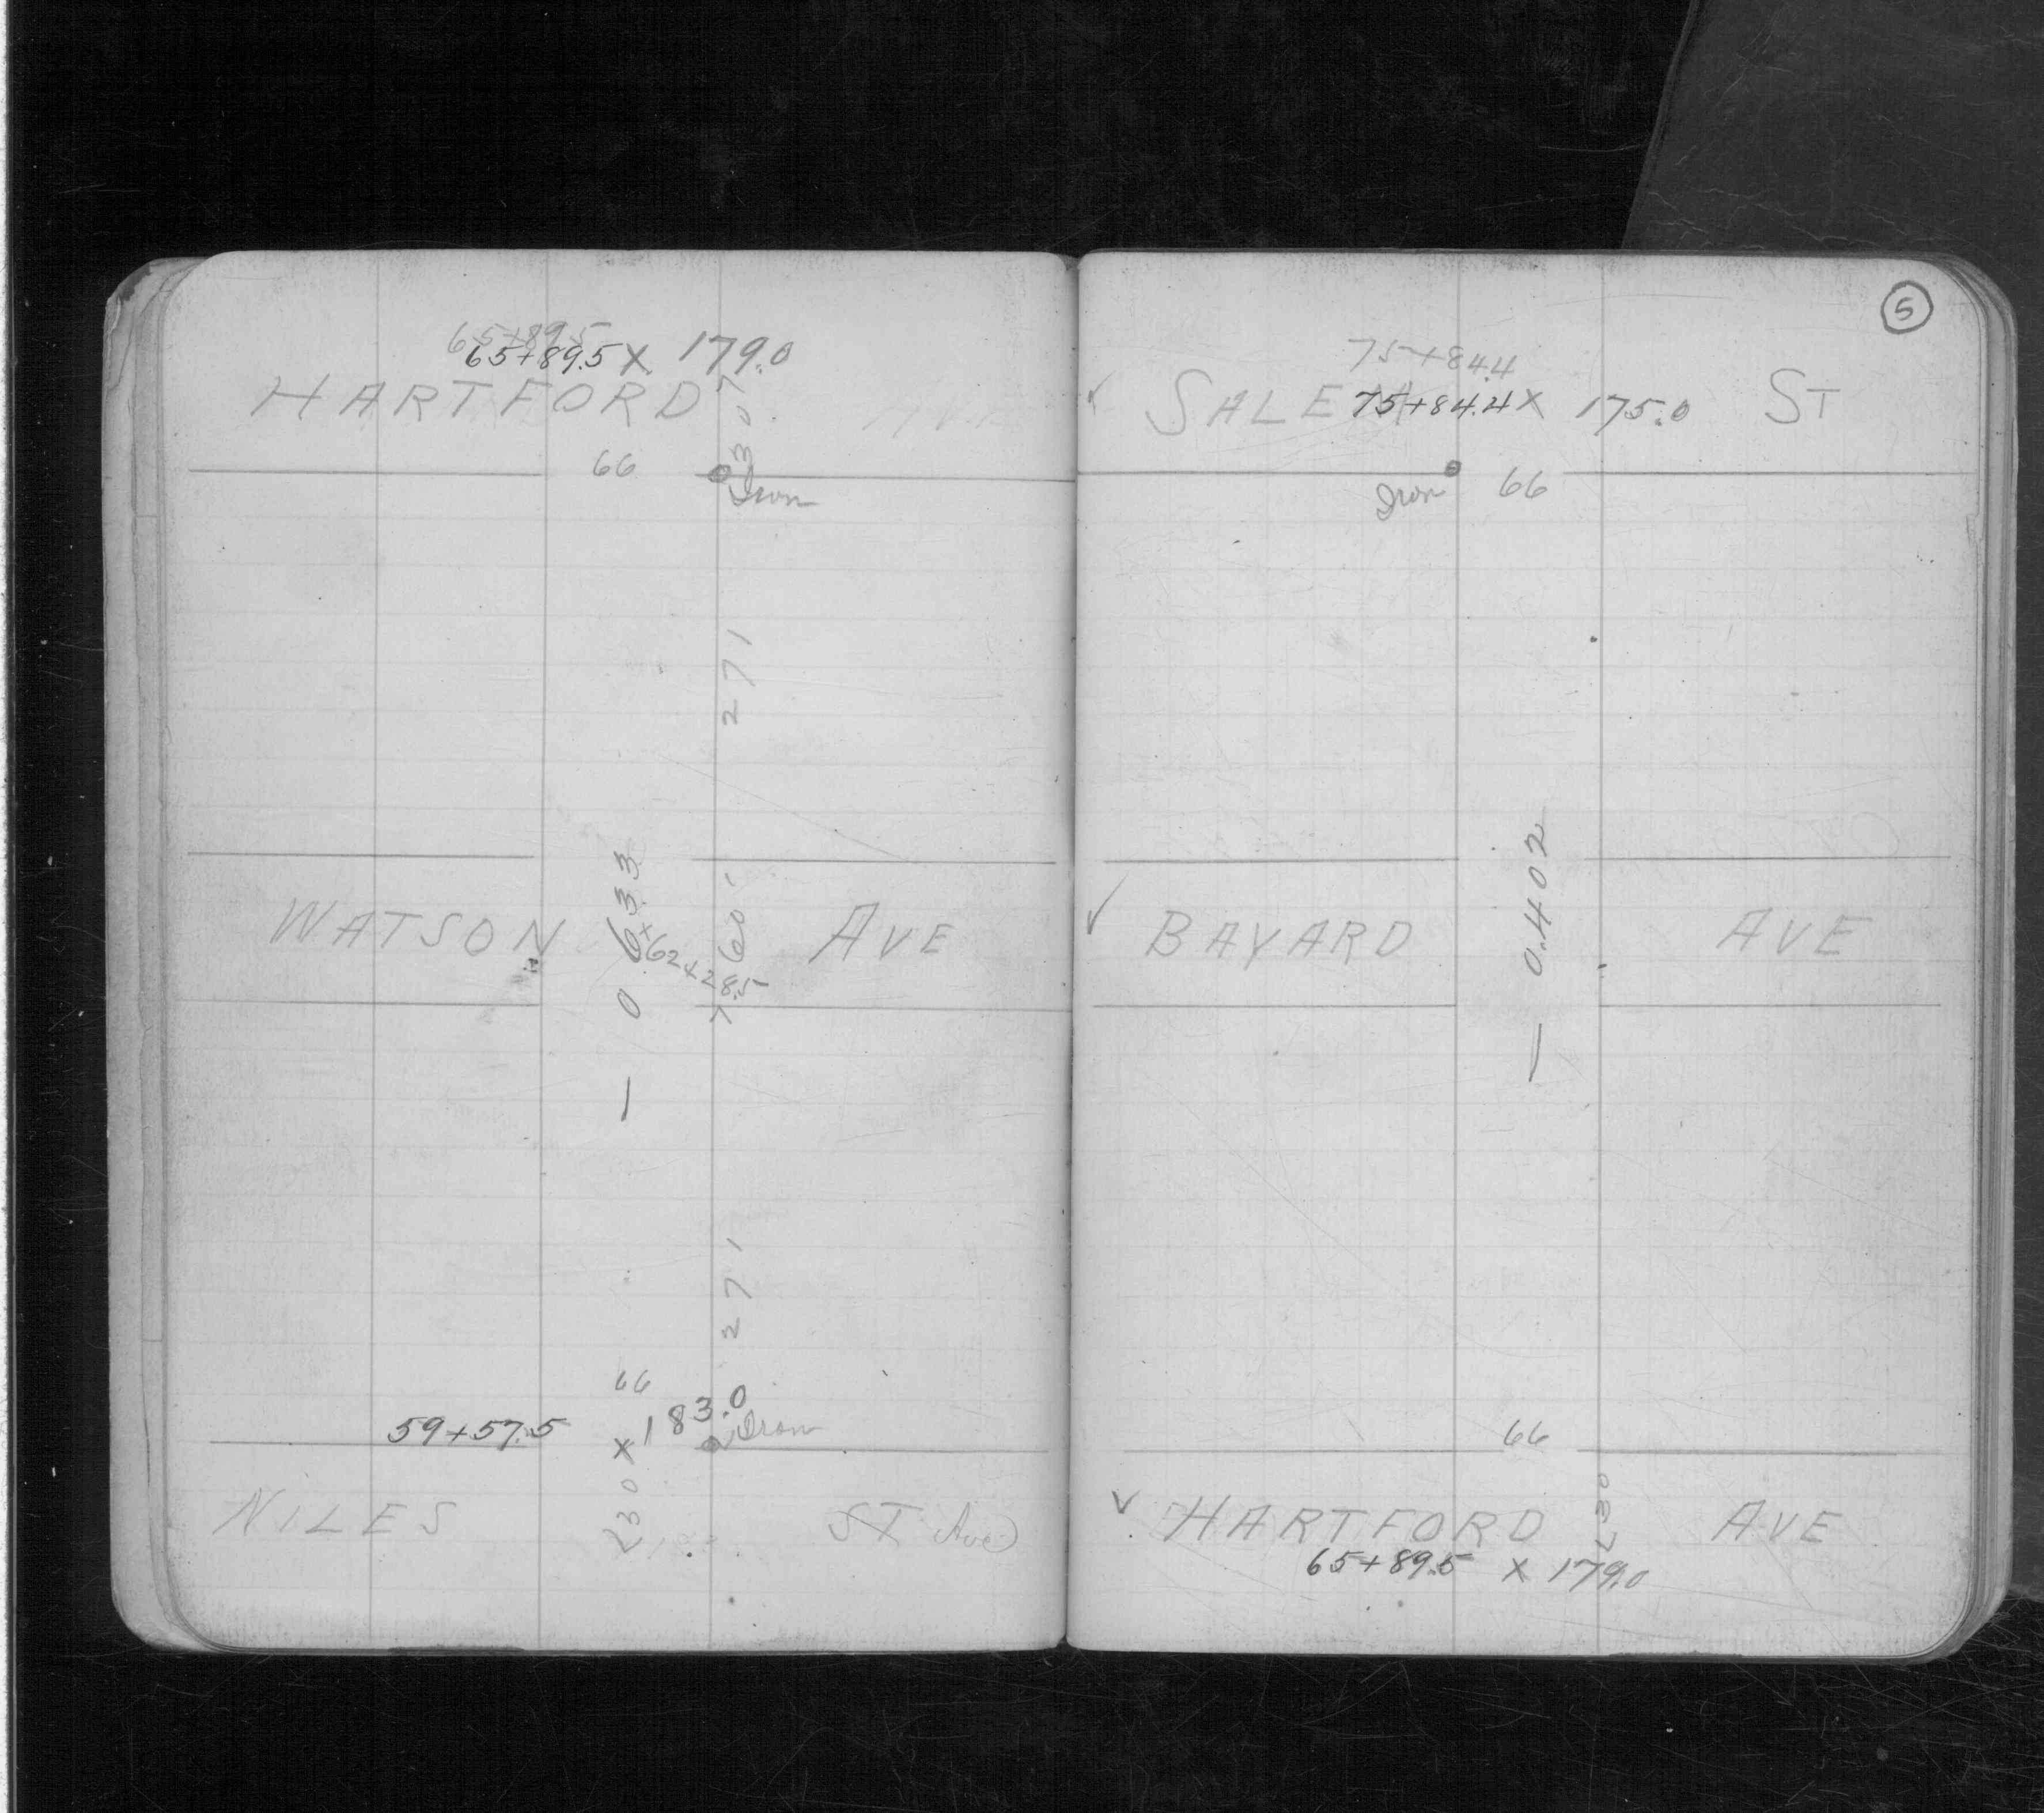 65+89.5
65+89.5 X 179.0
HARTFORD
307
66
Iron
271
WATSON AVE
— 0.633
+62+28.5
60'
271
66
59+57.5 x 183.0
Iron
230
NILES ST Ave
5
75+84.4
SALEM 75+84.4 X 175.0 ST
Iron 66
BAYARD AVE
— 0.402
66
230
HARTFORD AVE
65+89.5 X 179.0